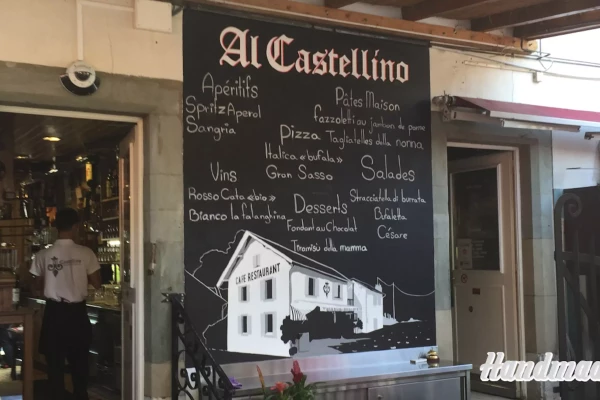 Al Castellino
Apéritifs
Spritz Aperol
Sangria
Pâtes Maison
fazzoletti au jambon de parme
Tagiatelles della nonna
Pizza
Italica «bufala»
Gran Sasso
Vins
Rosso Cata «bio»
Bianco la falanghina
Desserts
Fondant au Chocolat
Tiramisù della mamma
Salades
Stracciatella di burrata
Bufaletta
César
CAFE-RESTAURANT